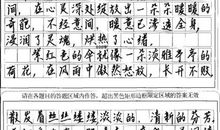 间，在心灵深处绽放出一朵朵暖暖的
奇葩，不经意间，暖意已渗透全身，
浸润了灵魂，炽热了心绪，
紫红色的伞就像一朵淡雅亭亭的
荷花，在风雨中傲然绽放，长开不败
请在各题目的答题区域内作答，超出黑色矩形边框限定区域的答案无效
散发着丝丝缕缕淡淡的、清新的芬芳